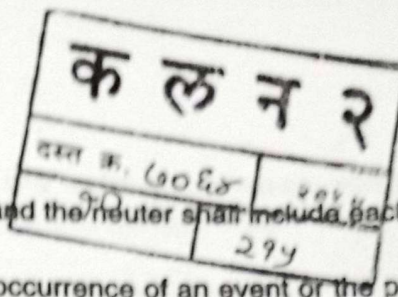 क ल न २
दस्त क्र. ७०६४
and the neuter shall include
२१५
occurrence of an event or the